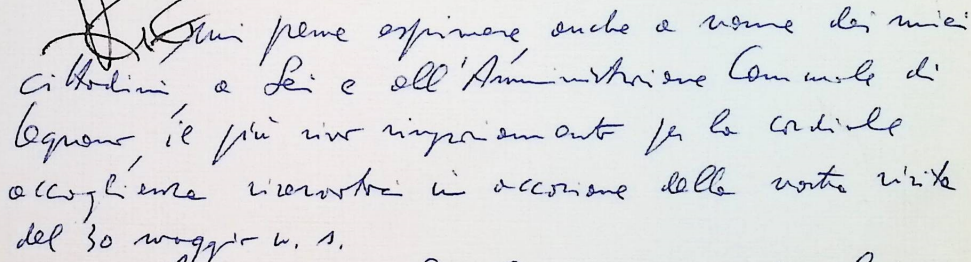 mi preme esprimere anche a nome dei miei
cittadini a Lei e all'Amministrazione Comunale di
Legnano il più vivo ringraziamento per la cordiale
accoglienza riservataci in occasione della nostra visita
del 30 maggio u. s.